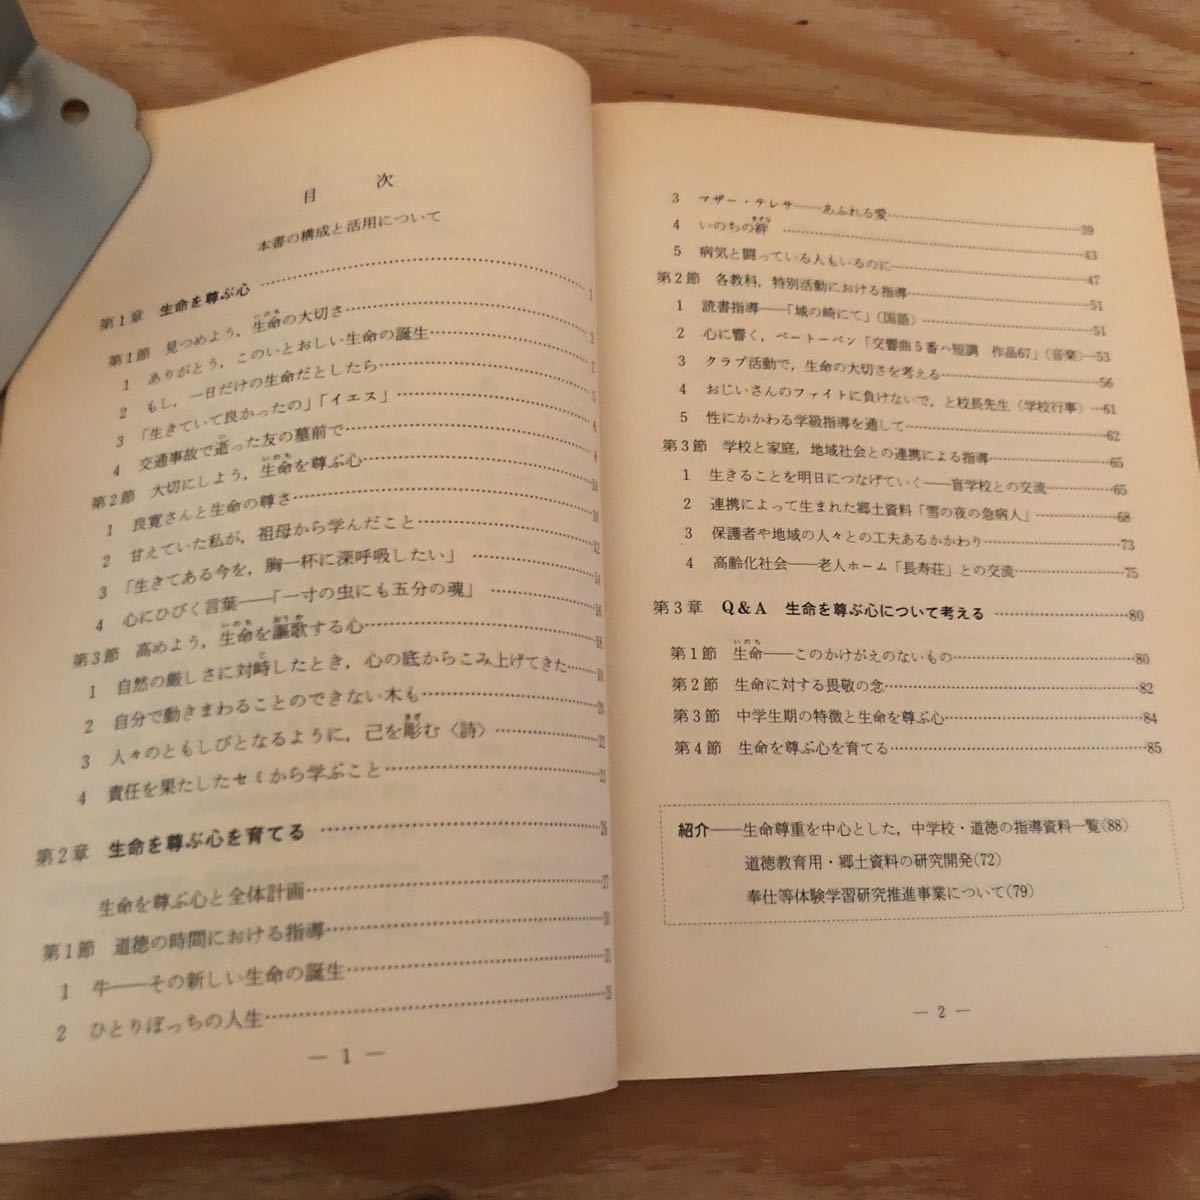 目　次
本書の構成と活用について
第1章　生命を尊ぶ心…………1
第1節　見つめよう，生命の大切さ…………2
1　ありがとう，このいとおしい生命の誕生…………2
2　もし，一日だけの生命だとしたら…………5
3　「生きていて良かったの」「イエス」…………6
4　交通事故で逝った友の墓前で…………8
第2節　大切にしよう，生命を尊ぶ心…………10
1　良寛さんと生命の尊さ…………10
2　甘えていた私が，祖母から学んだこと…………12
3　「生きてある今を，胸一杯に深呼吸したい」…………14
4　心にひびく言葉――「一寸の虫にも五分の魂」…………16
第3節　高めよう，生命を謳歌する心…………18
1　自然の厳しさに対峙したとき，心の底からこみ上げてきた…………18
2　自分で動きまわることのできない木も…………20
3　人々のともしびとなるように，己を彫む〈詩〉…………22
4　責任を果たしたセミから学ぶこと…………22
第2章　生命を尊ぶ心を育てる…………26
生命を尊ぶ心と全体計画…………27
第1節　道徳の時間における指導…………31
1　牛――その新しい生命の誕生…………31
2　ひとりぼっちの人生…………35
― 1 ―
3　マザー・テレサ――あふれる愛…………39
4　いのちの絆…………43
5　病気と闘っている人もいるのに…………47
第2節　各教科，特別活動における指導…………51
1　読書指導――「城の崎にて」（国語）…………51
2　心に響く，ベートーベン「交響曲5番ハ短調　作品67」（音楽）…53
3　クラブ活動で，生命の大切さを考える…………56
4　おじいさんのファイトに負けないで，と校長先生（学校行事）…61
5　性にかかわる学級指導を通して…………62
第3節　学校と家庭，地域社会との連携による指導…………65
1　生きることを明日につなげていく――盲学校との交流…………65
2　連携によって生まれた郷土資料「雪の夜の急病人」…………68
3　保護者や地域の人々との工夫あるかかわり…………73
4　高齢化社会――老人ホーム「長寿荘」との交流…………75
第3章　Q＆A　生命を尊ぶ心について考える…………80
第1節　生命――このかけがえのないもの…………80
第2節　生命に対する畏敬の念…………82
第3節　中学生期の特徴と生命を尊ぶ心…………84
第4節　生命を尊ぶ心を育てる…………85
紹介――生命尊重を中心とした，中学校・道徳の指導資料一覧(88)
道徳教育用・郷土資料の研究開発(72)
奉仕等体験学習研究推進事業について(79)
― 2 ―